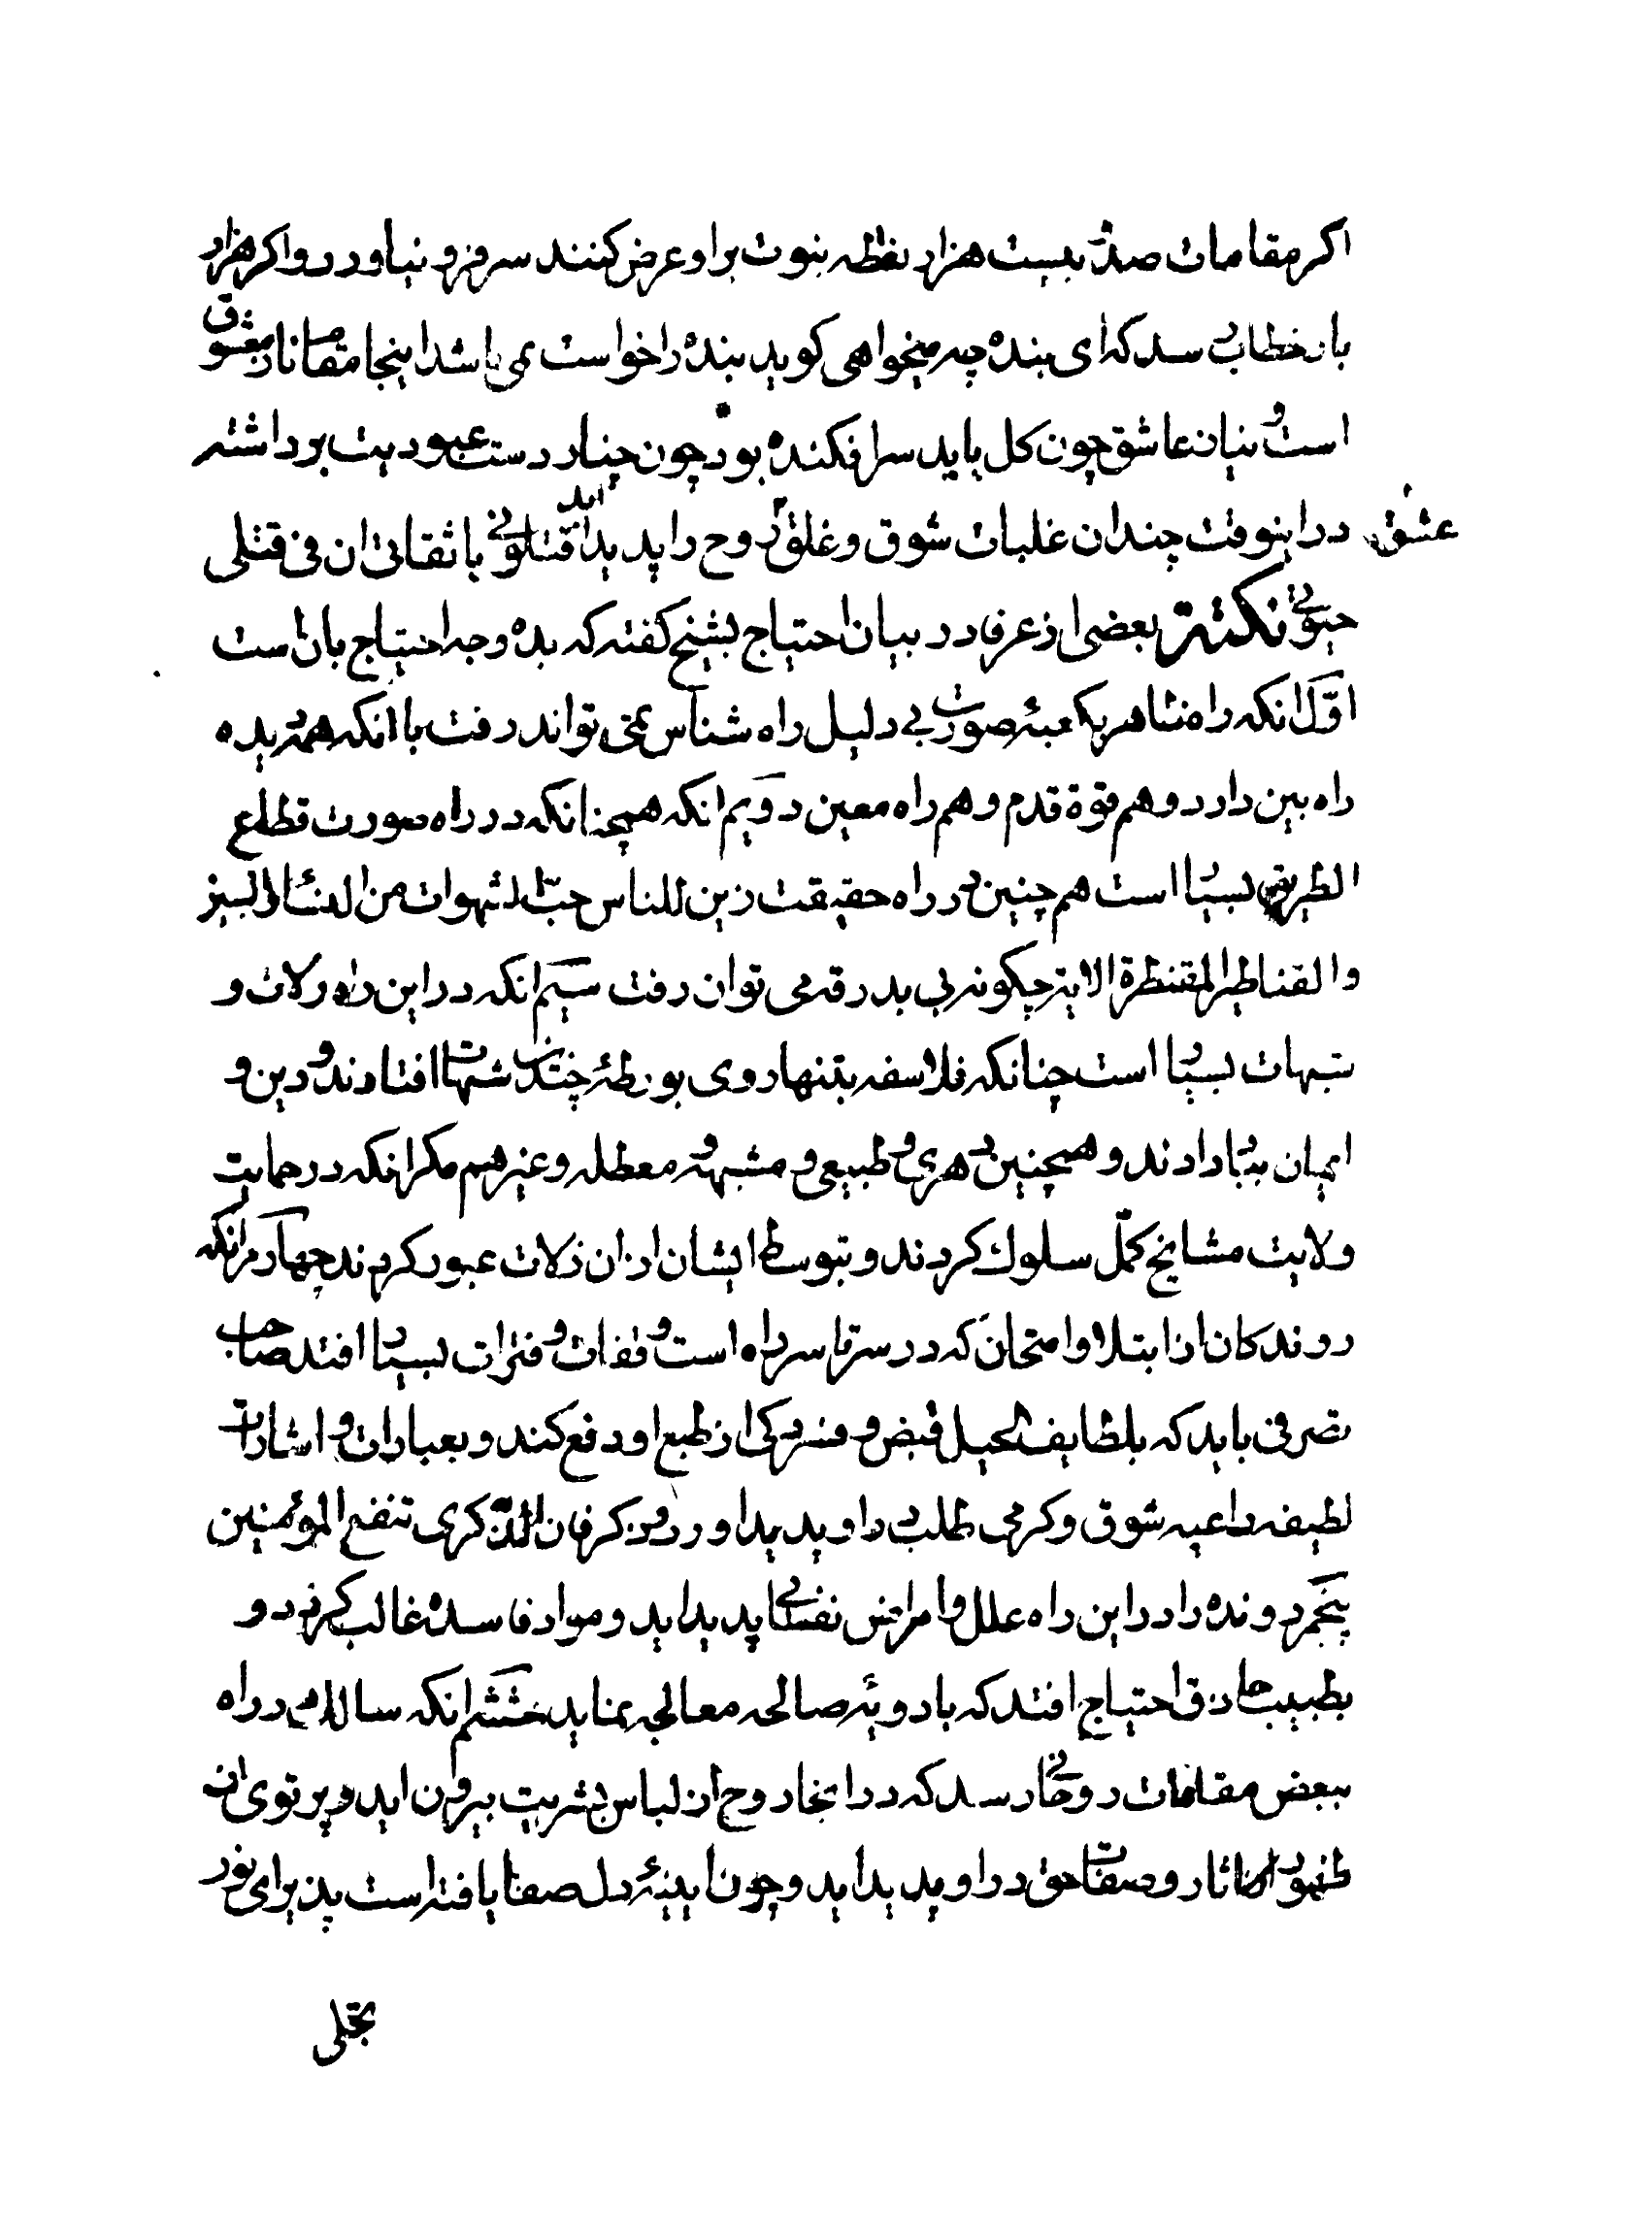 اکر مقامات صد و بیست هزار نقطه نبوت براو عرض کنند سر فرو نیاورد و اکر هزار
بار خطاب رسد که ای بنده چه میخواهی کوید بنده را خواست نمی باشد اینجا مقام ناز معشوق
است و نیان عاشق چون کل باید سرافکنده بود چون چنار دست عبودیت برداشته
عشق دراینوقت چندان غلبات شوق و غلق روح را پدید اید اقتلونی یا ثقاتی ان فی قتلی
حیوتی نکته بعضی از عرفا در بیان احتیاج بشیخ کفته که بده وجه احتیاج بان است
اوّل انکه راه ظاهر بکعبۀ صورت بی دلیل راه شناس نمی تواند رفت با انکه هم دیده
راه بین دارد و هم قوة قدم و هم راه معین دویم انکه همچنانکه در راه صورت قطاع
الطریق بسیار است هم چنین در راه حقیقت زین للناس حبّ الشهوات من النساء و البنین
والقناطیر المقنطرة الایه چکونه بی بدرقه می توان رفت سیم انکه در این راه زلات و
شبهات بسیار است چنانکه فلاسفه بتنها روی بورطۀ چندین شبهات افتادند و دین و
ایمان بباد دادند و همچنین دهری و طبیعی و مشبهه و معطله و غیرهم مکر انکه در حمایت
ولایت مشایخ کمّل سلوک کردند و بتوسط ایشان از ان زلات عبور کردند چهارم انکه
روندکان از ابتلا و امتحان که در سرتاسر راه است وقفات و فترات بسیار افتد صاحب
تصرفی باید که بلطایف الحیل قبض و فسردکی از طبع او دفع کند و بعبارات و اشارات
لطیفه داعیه شوق و کرمی طلب در او پدید اورد و ذکر فان الذّکری تنفع المؤمنین
پنجم رونده را در این راه علل و امراض نفسانی پدید اید و مواد فاسده غالب کردد و
بطبیب حاذق احتیاج افتد که بادویۀ صالحه معالجه نماید ششم انکه سالک در راه
ببعض مقامات روحانی رسد که در انجا روح از لباس بشریت بیرون اید و پرتوی از
ظهور اثار و صفات حق در او پدید اید و چون اینۀ دل صفا یافته است پذیرای نور
تجلی